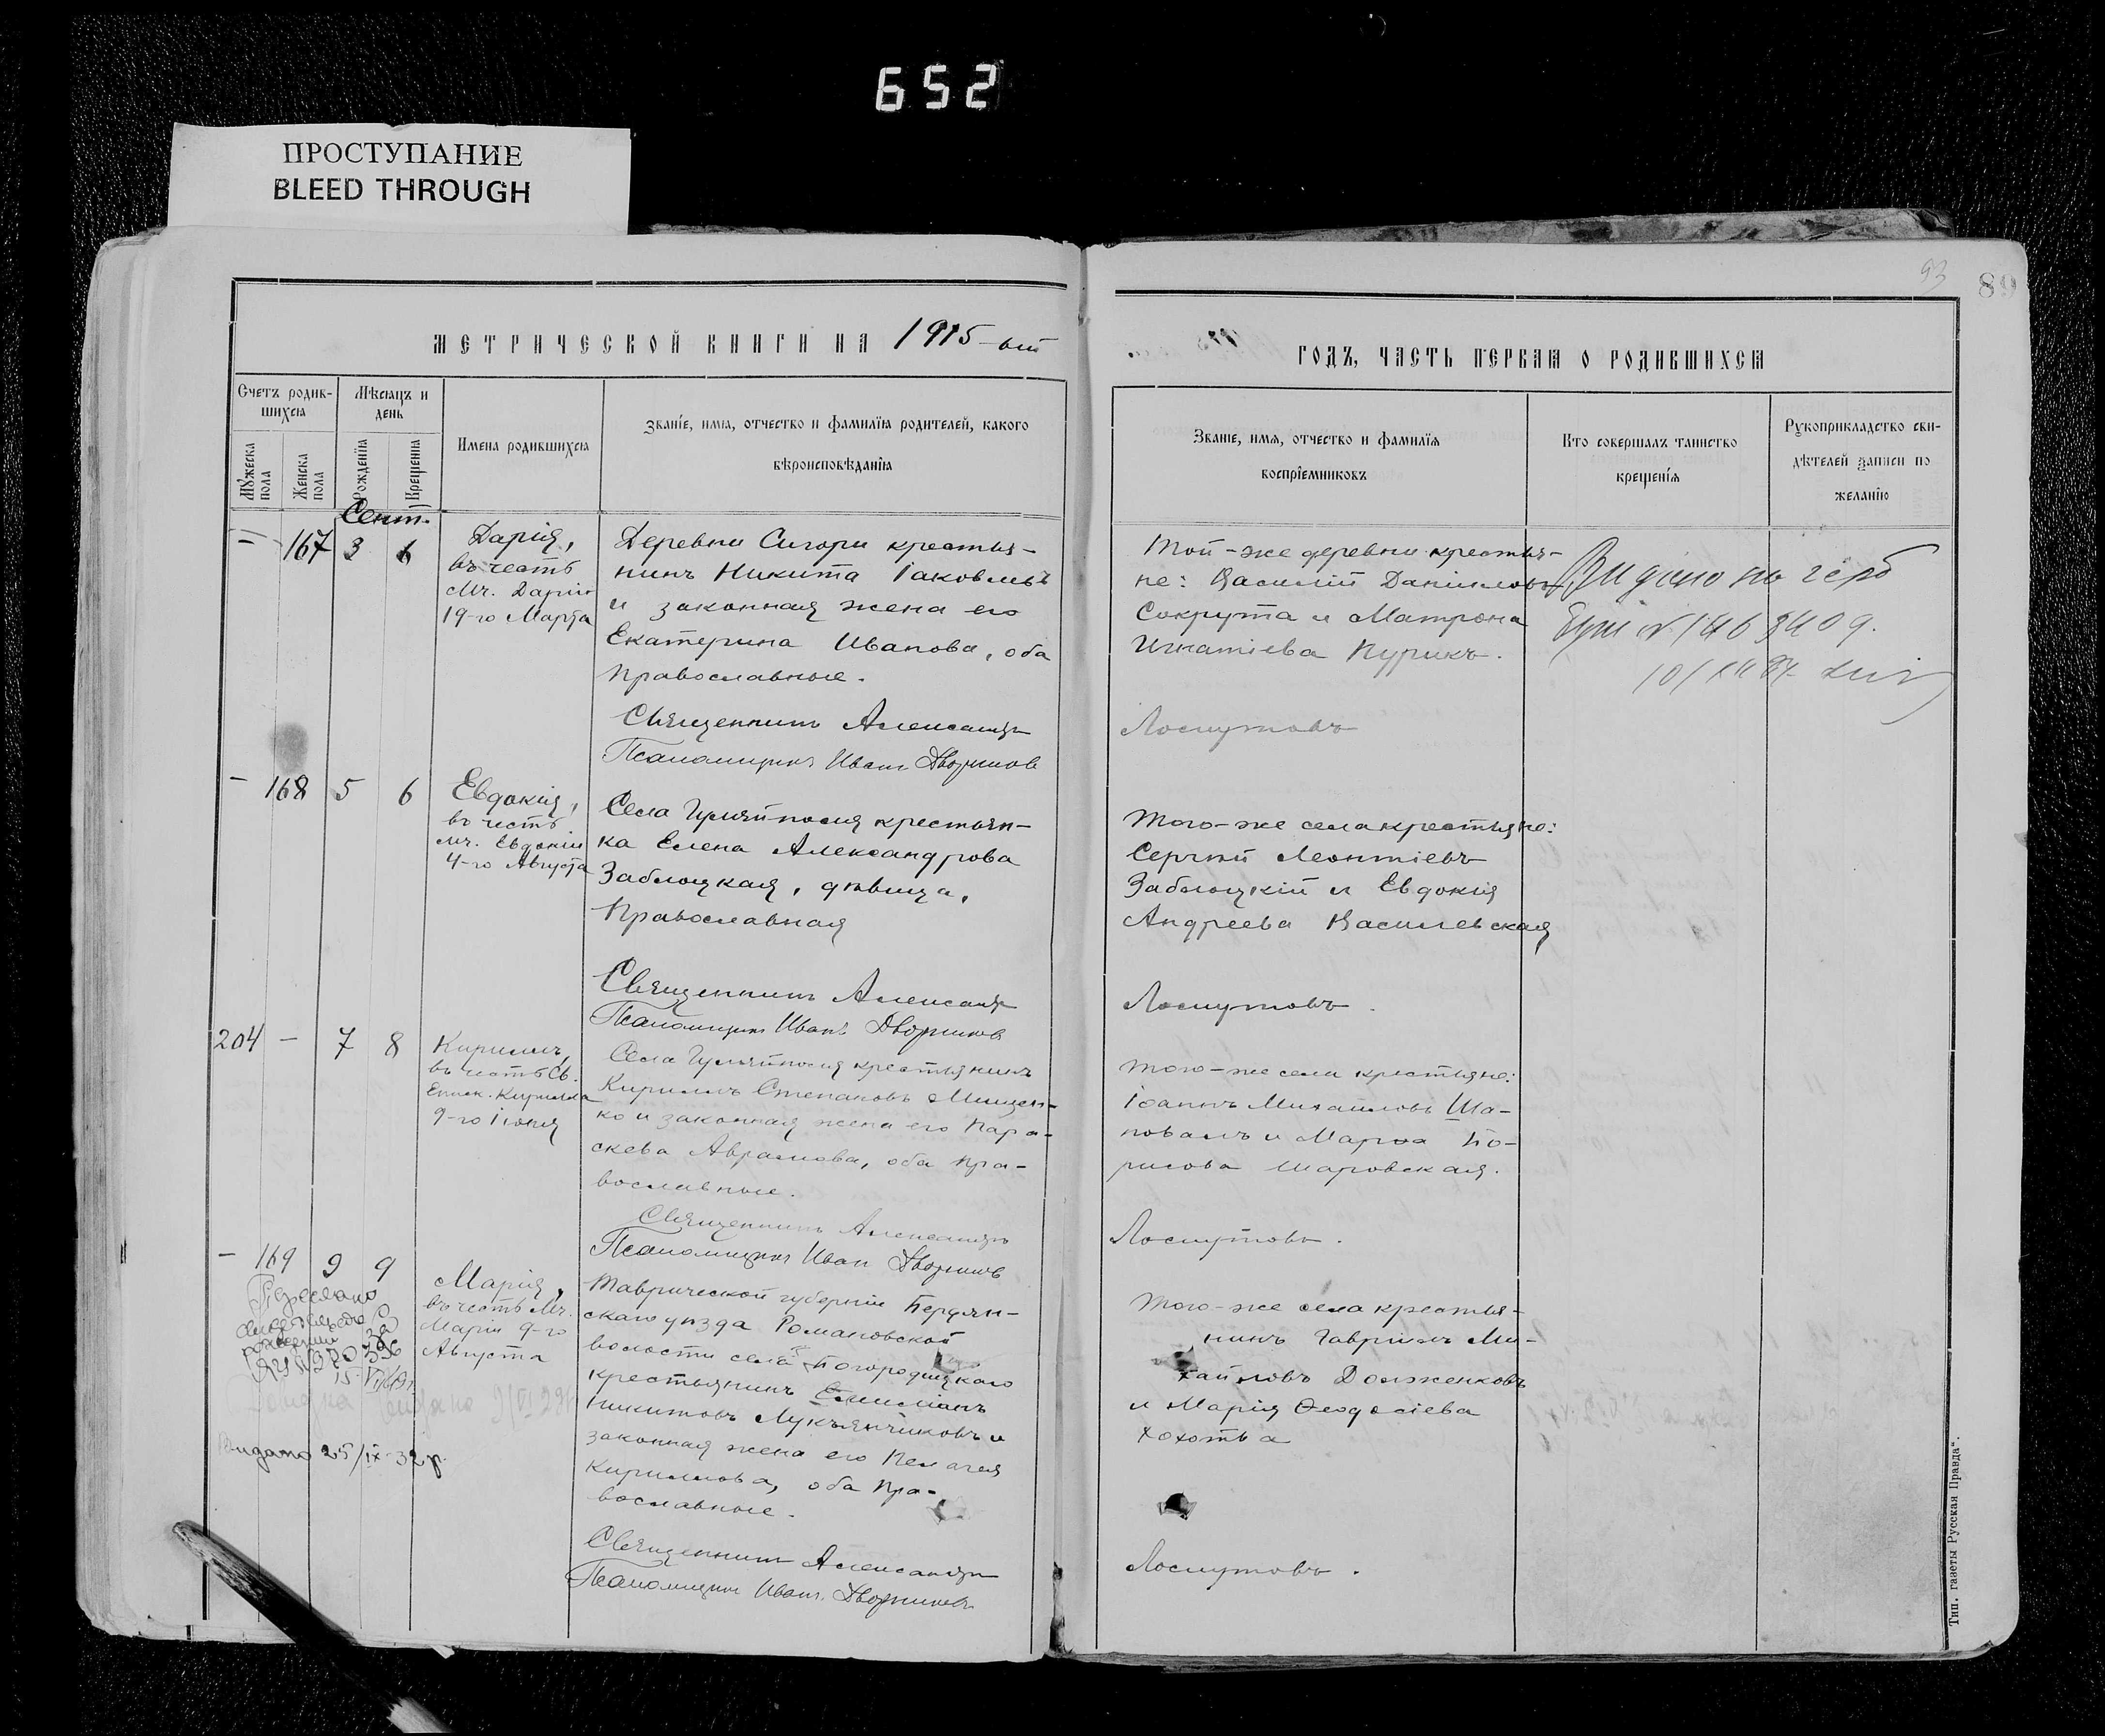 652
ПРОСТУПАНИЕ
BLEED THROUGH
93
89
МЕТРИЧЕСКОЙ КНИГИ НА 1915-ый
ГОДЪ, ЧАСТЬ ПЕРВАЯ О РОДИВШИХСЯ
Счетъ родив-
шихся
Мѣсяцъ и
день
Мужеска
пола
Женска
пола
Рожденія
Крещенія
Имена родившихся
Званіе, имя, отчество и фамилія родителей, какого
вѣроисповѣданія
Званіе, имя, отчество и фамилія
воспріемниковъ
Кто совершалъ таинство
крещенія
Рукоприкладство сви-
дѣтелей записи по
желанію
Сент.
— 167 3 6
Дарія,
въ честь
Мч. Даріи
19-го Марта
Деревни Сигори крестья-
нинъ Никита Іаковлевъ
и законная жена его
Екатерина Иванова, оба
православные.
Священникъ Александръ
Псаломщикъ Иванъ Дворниковъ
Той-же деревни крестья-
не: Василій Даніиловъ
Сокрута и Матрона
Игнатіева Пурикъ.
Лоскутовъ
Видано на герб
№ 1463409.
— 168 5 6
Евдокія,
въ честь
мч. Евдокіи
4-го Августа
Села Гуляйполя крестьян-
ка Елена Александрова
Заблоцкая, дѣвица,
Православная
Священникъ Александръ
Псаломщикъ Иванъ Дворниковъ
Того-же села крестьяне:
Сергій Леонтіевъ
Заблоцкій и Евдокія
Андреева Василевская
Лоскутовъ.
204 — 7 8
Кириллъ,
въ честь Св.
Еписк. Кирилла
9-го Іюня
Села Гуляйполя крестьянинъ
Кириллъ Степановъ Мищен-
ко и законная жена его Пара-
скева Аврамова, оба пра-
вославные.
Священникъ Александръ
Псаломщикъ Иванъ Дворниковъ
Того-же села крестьяне:
Іоаннъ Михаиловъ Ша-
повалъ и Марѳа Бо-
рисова Шаровская.
Лоскутовъ.
— 169 9 9
Марія,
въ честь Мч.
Маріи 9-го
Августа
Таврической губерніи Бердян-
скаго уѣзда Романовской
волости села Богородицкаго
крестьянинъ Емиліанъ
Никитовъ Лукъянчиковъ и
законная жена его Пелагея
Кириллова, оба пра-
вославные.
Священникъ Александръ
Псаломщикъ Иванъ Дворниковъ
Того-же села крестья-
нинъ Гавріилъ Ми-
хайловъ Долженковъ
и Марія Ѳеодосіева
Хохотва
Лоскутовъ.
Видано 25/IX-32 р.
Тип. газеты Русская Правда".